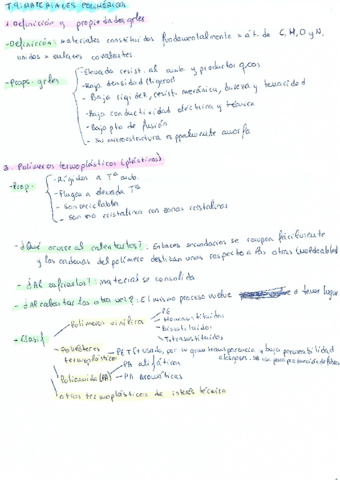 T.9. MATERIALES POLIMÉRICOS
1. Definición y propiedades grales
- Definición: materiales constituidos fundamentalmente x át. de C, H, O y N,
unidos x enlaces covalentes
- Props. grales
- Elevada resist. al amb. y productos qcos
- Baja densidad (ligeros)
- Baja rigidez, resist. mecánica, dureza y tenacidad
- Baja conductividad eléctrica y térmica
- Bajo pto de fusión
- Su microestructura es parcialmente amorfa
3. Polímeros termoplásticos (plásticos)
- Prop
- Rígidos a Tª amb.
- Fluyen a elevada Tª
- Son reciclables
- Son no cristalinos con zonas cristalinas
- ¿Qué ocurre al calentarlos?: Enlaces secundarios se rompen fácilmente
y las cadenas del polímero deslizan unas respecto a las otras (moldeables)
- ¿Al enfriarlos?: material se consolida
- ¿Al calentar los otra vez?: El mismo proceso vuelve a tener lugar
- Clasif
Polímeros vinílicos
PE
Monosustituidos
Bisustituidos
Tetrasustituidos
Poliésteres termoplásticos
PET (+ usado, por su gran transparencia y baja permeabilidad
a los gases. Se usa para
Poliamida (PA)
PA alifáticas
PA aromáticas
otros termoplásticos de interés técnico